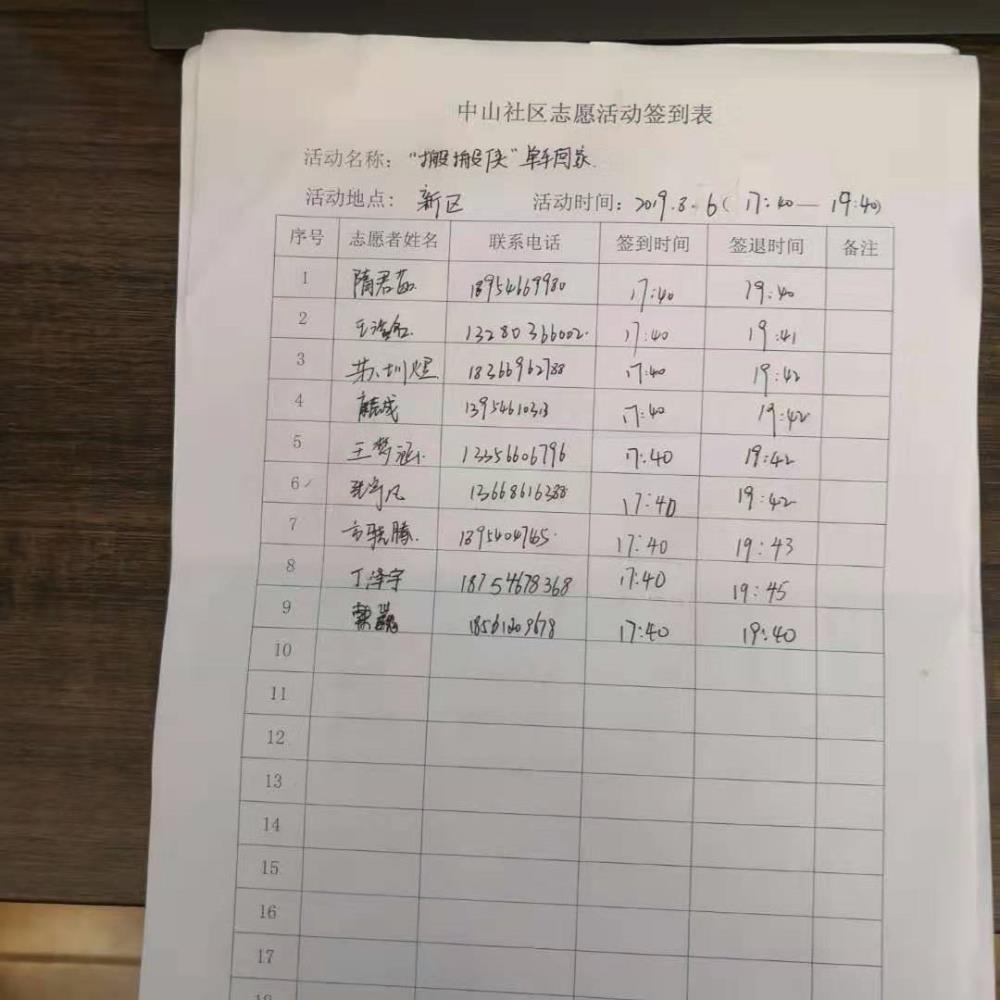 中山社区志愿活动签到表
活动名称：“搬搬侠”单车回家.
活动地点： 新区 活动时间：2019.8.6(17:40—19:40)
序号 志愿者姓名 联系电话 签到时间 签退时间 备注
1 隋君茹 18954669980 17:40 19:40
2 13280366002. 17:40 19:41
3 苏圳煜 18366962788 17:40 19:42
4 17:40 19:42
5 王梦涵. 13356606796 17:40 19:42
6 张宇凡 13668616388 17:40 19:42
7 17:40 19:43
8 丁泽宇 18754678368 17:40 19:45
9 18561209678 17:40 19:40
10
11
12
13
14
15
16
17
18